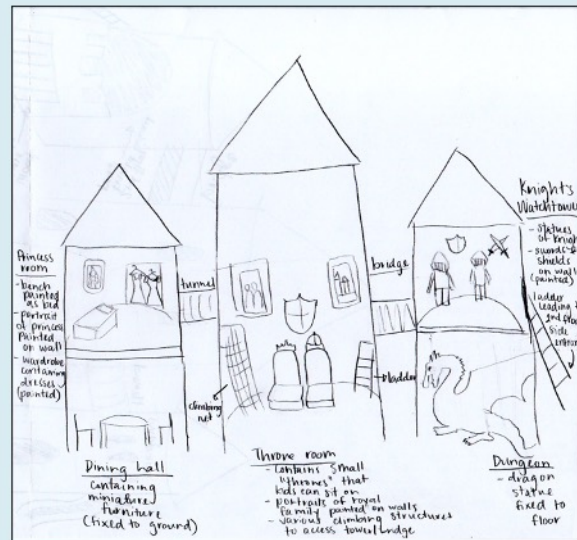 Princess
room
- bench
painted
as bed
- portrait
of princess
painted
on wall
- wardrobe
containing
dresses
(painted)
tunnel
climbing
net
bridge
ladder
Knight's
Watchtower
- statues
of knights
- swords &
shields
on walls
(painted)
ladder
leading
2nd floor
side
entrance
Dining hall
containing
miniature
furniture
(fixed to ground)
Throne room
- contains small
"thrones" that
kids can sit on
- portraits of royal
family painted on walls
- various climbing structures
to access tower/bridge
Dungeon
- dragon
statue
fixed to
floor